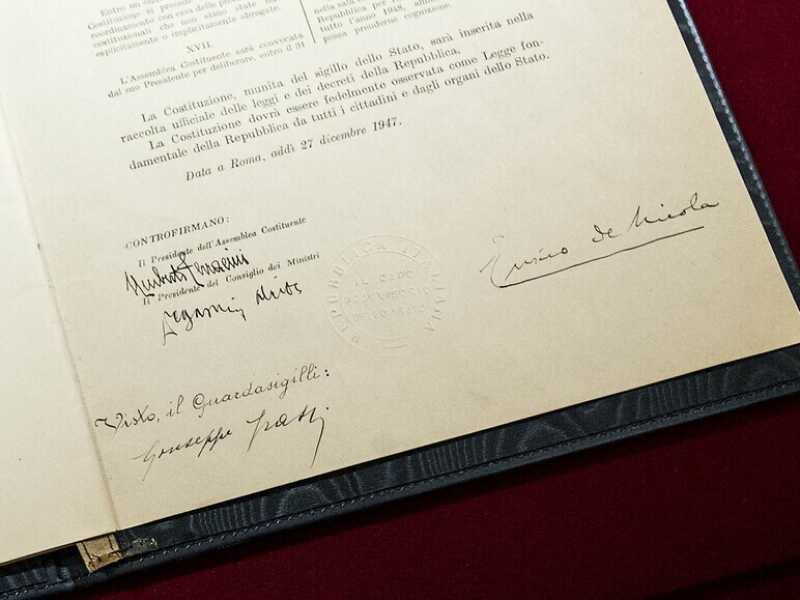 Entro un
si procede
coordinamento con essa delle
costituzionali che non siano state
esplicitamente o implicitamente abrogate.
XVII.
L'Assemblea Costituente sarà convocata
dal suo Presidente per deliberare, entro il 31
nella sala
Repubblica per
tutto l'anno 1948,
possa prenderne cognizione.
La Costituzione, munita del sigillo dello Stato, sarà inserita nella
raccolta ufficiale delle leggi e dei decreti della Repubblica.
La Costituzione dovrà essere fedelmente osservata come Legge fon-
damentale della Repubblica da tutti i cittadini e dagli organi dello Stato.
Data a Roma, addì 27 dicembre 1947.
Enrico de Nicola
CONTROFIRMANO:
Il Presidente dell'Assemblea Costituente
Umberto Terracini
Il Presidente del Consiglio dei Ministri
Degasperi Alcide
REPUBBLICA ITALIANA
IL CAPO
PROVVISORIO
DELLO STATO
Visto, il Guardasigilli:
Giuseppe Grassi